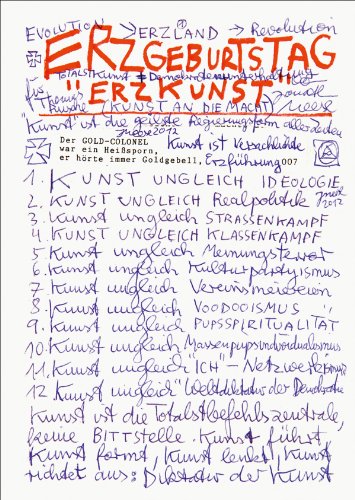 EVOLUTION > ERZLAND > Revolution
ERZGEBURTSTAG
TOTALSTKUNST
"ERZKUNST"
für
(KUNST AN DIE MACHT) Meese
"Kunst" ist die geilste Regierungsform aller Zeiten
Meese 2012
Der GOLD-COLONEL
war ein Heißsporn,
er hörte immer Goldgebell, Erzführung 007
Kunst ist
1. KUNST UNGLEICH IDEOLOGIE
2. KUNST UNGLEICH Realpolitik
2012
3. Kunst ungleich STRASSENKAMPF
4. KUNST UNGLEICH KLASSENKAMPF
5. Kunst ungleich Meinungsterror
6. Kunst ungleich Kulturpartyismus
7. Kunst ungleich Vereinsmeiereien
8. Kunst ungleich VOODOOISMUS
9. Kunst ungleich PUPSSPIRITUALITÄT
10. Kunst ungleich Massenpupsindividualismus
11. Kunst ungleich "ICH"-Netzwerkerismus
12 Kunst ungleich "Weltdiktatur der Demokratie
Kunst ist die Totalstbefehlszentrale,
keine BITTSTELLE. Kunst führt,
Kunst formt, Kunst lenkt, Kunst
richtet aus: Diktatur der Kunst